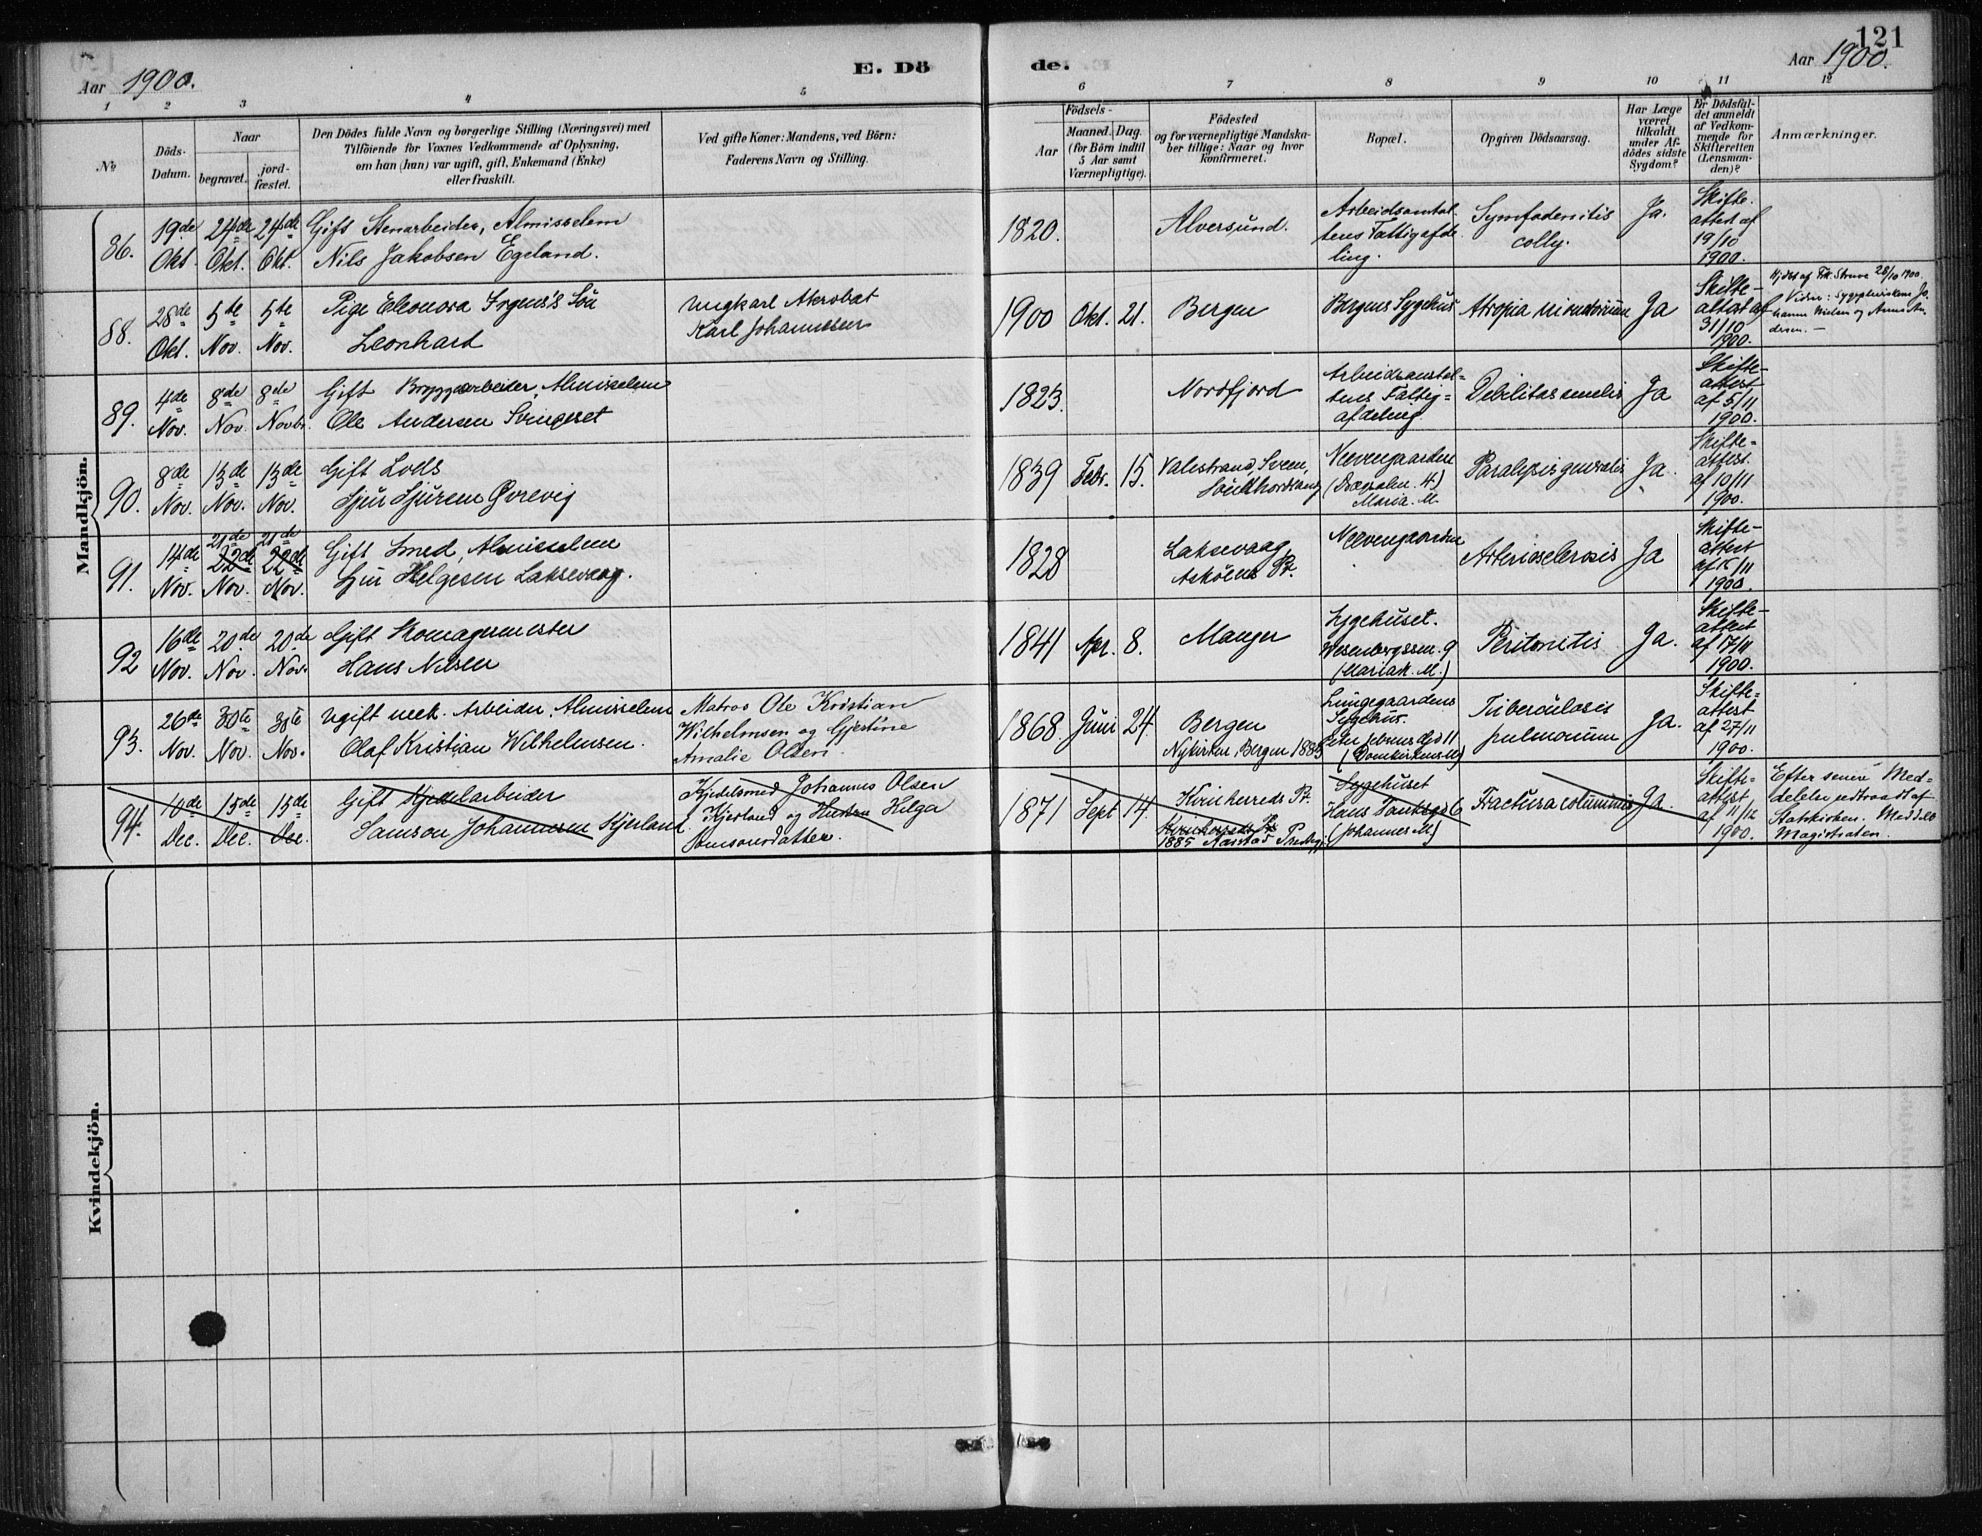 121
Aar 1900.
E. Dö
de.
Aar 1900.
1 2 3 4 5 6 7 8 9 10 11 12
No
Döds-
Datum.
Naar
begravet.
jord-
fæstet.
Den Dödes fulde Navn og borgerlige Stilling (Næringsvei) med
Tilföiende for Voxnes Vedkommende af Oplysning,
om han (hun) var ugift, gift, Enkemand (Enke)
eller fraskilt.
Ved gifte Koner: Mandens, ved Börn:
Faderens Navn og Stilling.
Födsels-
Aar
Maaned. Dag.
(for Börn indtil
5 Aar samt
Værnepligtige).
Födested
og for værnepligtige Mandska-
ber tillige: Naar og hvor
konfirmeret.
Bopæl.
Opgiven Dödsaarsag.
Har Læge
været
tilkaldt
under Af-
dödes sidste
Sygdom?
Er Dödsfal-
det anmeldt
af Vedkom-
mende for
Skifteretten
(Lensman-
den)?
Anmærkninger.
Mandkjön.
86.
19de
Okt.
24de
Okt.
24de
Okt.
Gift Stenarbeider, Almisselem
Nils Jakobsen Egeland.
1820.
Alversund.
Arbeidsanstal-
tens Fattigafde
ling.
colly.
Ja.
Skifte-
attest af
19/10
1900.
88.
28de
Okt.
5te
Nov.
5te
Nov.
Pige Eleonora Irgens's Sön
Leonhart
Ungkarl Akrobat
Karl Johannessen
1900 Okt. 21.
Bergen
Bergens Sygehus
Atropia
Ja
Skifte-
attest af
31/10
1900.
28/10 1900.
89.
4de
Nov.
8de
Nov.
8de
Novbr.
Gift Bryggearbeider, Almisselem
Ole Andersen
1823.
Nordfjord
Arbeidsanstal-
tens Fattig-
afdeling
Debilitas senilis
Ja
Skifte-
attest
af 5/11
1900.
90.
8de
Nov.
13de
Nov.
13de
Nov.
Gift Lods
Sjur Sjursen
1839 Febr. 15.
Valestrand, Sveen,
Söndhordland
Neevengaarden
4)
Maria. M.
Paralysis generalis
Ja.
Skifte-
attest
af 10/11
1900.
91.
14de
Nov.
21de
22de
Nov.
21de
22de
Nov.
Gift Smed, Almisselem
Sjur Helgesen Laksevaag.
1828
Laksevaag
Asköens Pt.
Neevengaarden
Arteriosclerosis
Ja
Skifte-
attest
1900.
92
16de
Nov.
20de
Nov.
20de
Nov.
Gift Skomagermester
Hans Nilsen
1841 Apr. 8.
Manger
Sygehuset.
Wesenbergssm. 9
(Mariak. M.)
Peritonitis
Ja.
Skifte-
attest
af 17/11
1900.
93.
26de
Nov.
30te
Nov.
30te
Nov.
Ugift mek. Arbeider, Almisselem
Olaf Kristian Wilhelmsen.
Matros Ole Kristian
Wilhelmsen og Gjertine
Amalie Olsen.
1868. Juni 24.
Bergen
Nykirken, Bergen 1883
Lungegaardens
Sygehus.
(Domkirkens M)
Tuberculosis
pulmonum
Ja.
Skifte-
attest
af 27/11
1900.
94.
10de
Dec.
15de
Dec.
15de
Dec.
Gift Kjedelarbeider
Samson Johannesen Kjerland.
Kjedelsmed Johannes Olsen
Kjerland og Hustru Helga
Samsonsdatter.
1871 Sept 14.
Kvinherreds Pt.
1885
Sygehuset
Hans Tanksgd 6
(Johannes M)
Fractura columnis
Ja.
Skifte-
attest
af 11/12
1900.
Efter senere Med-
delelse udtraadt af
Statskirken. Meddelt
Magistraten.
Kvindekjön.